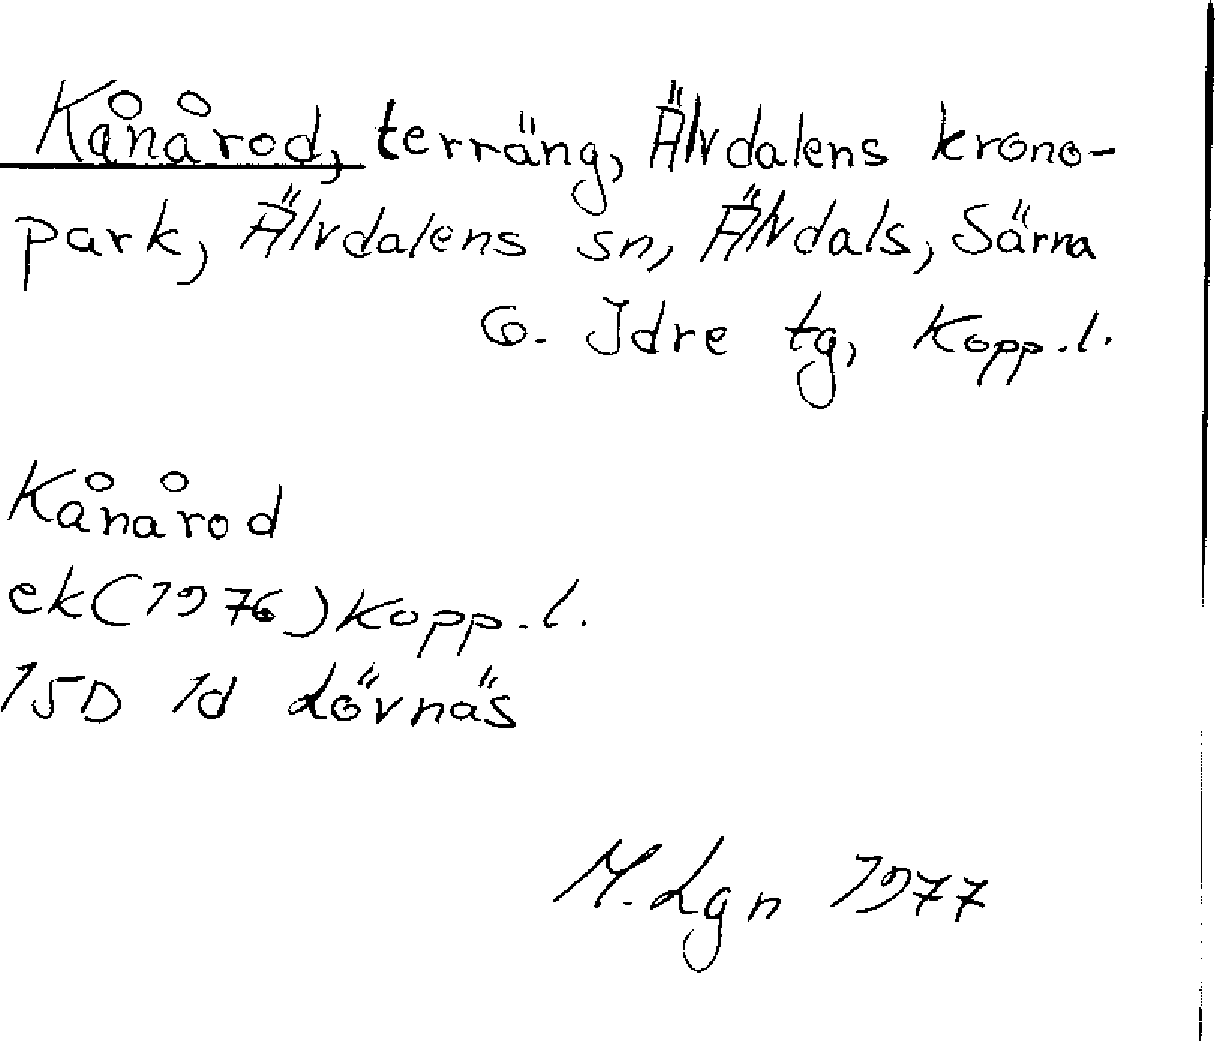 Kånårod, terräng, Älvdalens krono-
park, Älvdalens sn, Älvdals, Särna
o. Idre tg, Kopp.l.
Kånårod
ek(1976)Kopp.l.
15D 1d Lövnäs
M.Lgn 1977